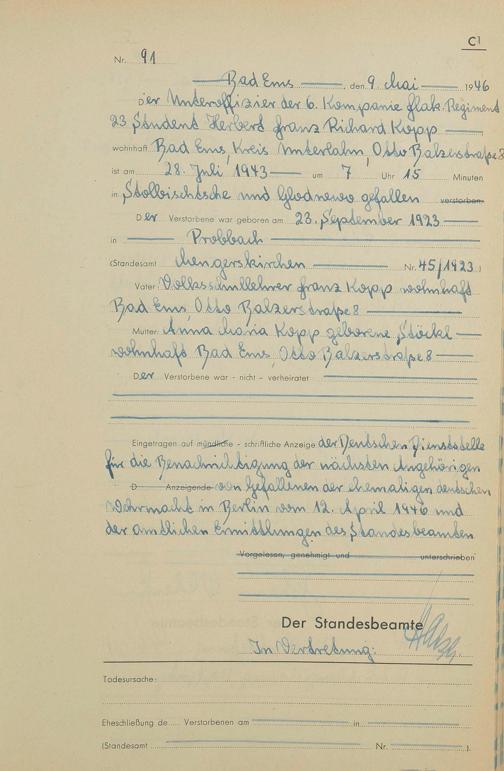 C1
Nr. 91
Bad Ems, den 9. Mai 1946
Der Unteroffizier der 6. Kompanie Flak-Regiment
23, Student Herbert Franz Richard Kopp
wohnhaft Bad Ems, Kreis Unterlahn, Otto Balzerstraße 8
ist am 28. Juli 1943 um 7 Uhr 15 Minuten
in und gefallen verstorben.
Der Verstorbene war geboren am 23. September 1923
in Probbach
(Standesamt Mengerskirchen Nr. 45/1923)
Vater: Volksschullehrer Franz Kopp wohnhaft
Bad Ems, Otto Balzerstraße 8
Mutter: Anna Maria Kopp geborene Stöckl
wohnhaft Bad Ems, Otto Balzerstraße 8
Der Verstorbene war - nicht - verheiratet
Eingetragen auf mündliche - schriftliche Anzeige der Deutschen Dienststelle
für die Benachrichtigung der nächsten Angehörigen
D Anzeigende von Gefallenen der ehemaligen deutschen
Wehrmacht in Berlin vom 12. April 1946 und
der amtlichen Ermittlungen des Standesbeamten
Vorgelesen, genehmigt und unterschrieben
Der Standesbeamte
In Vertretung:
Todesursache:
Eheschließung de Verstorbenen am in
(Standesamt Nr. ).